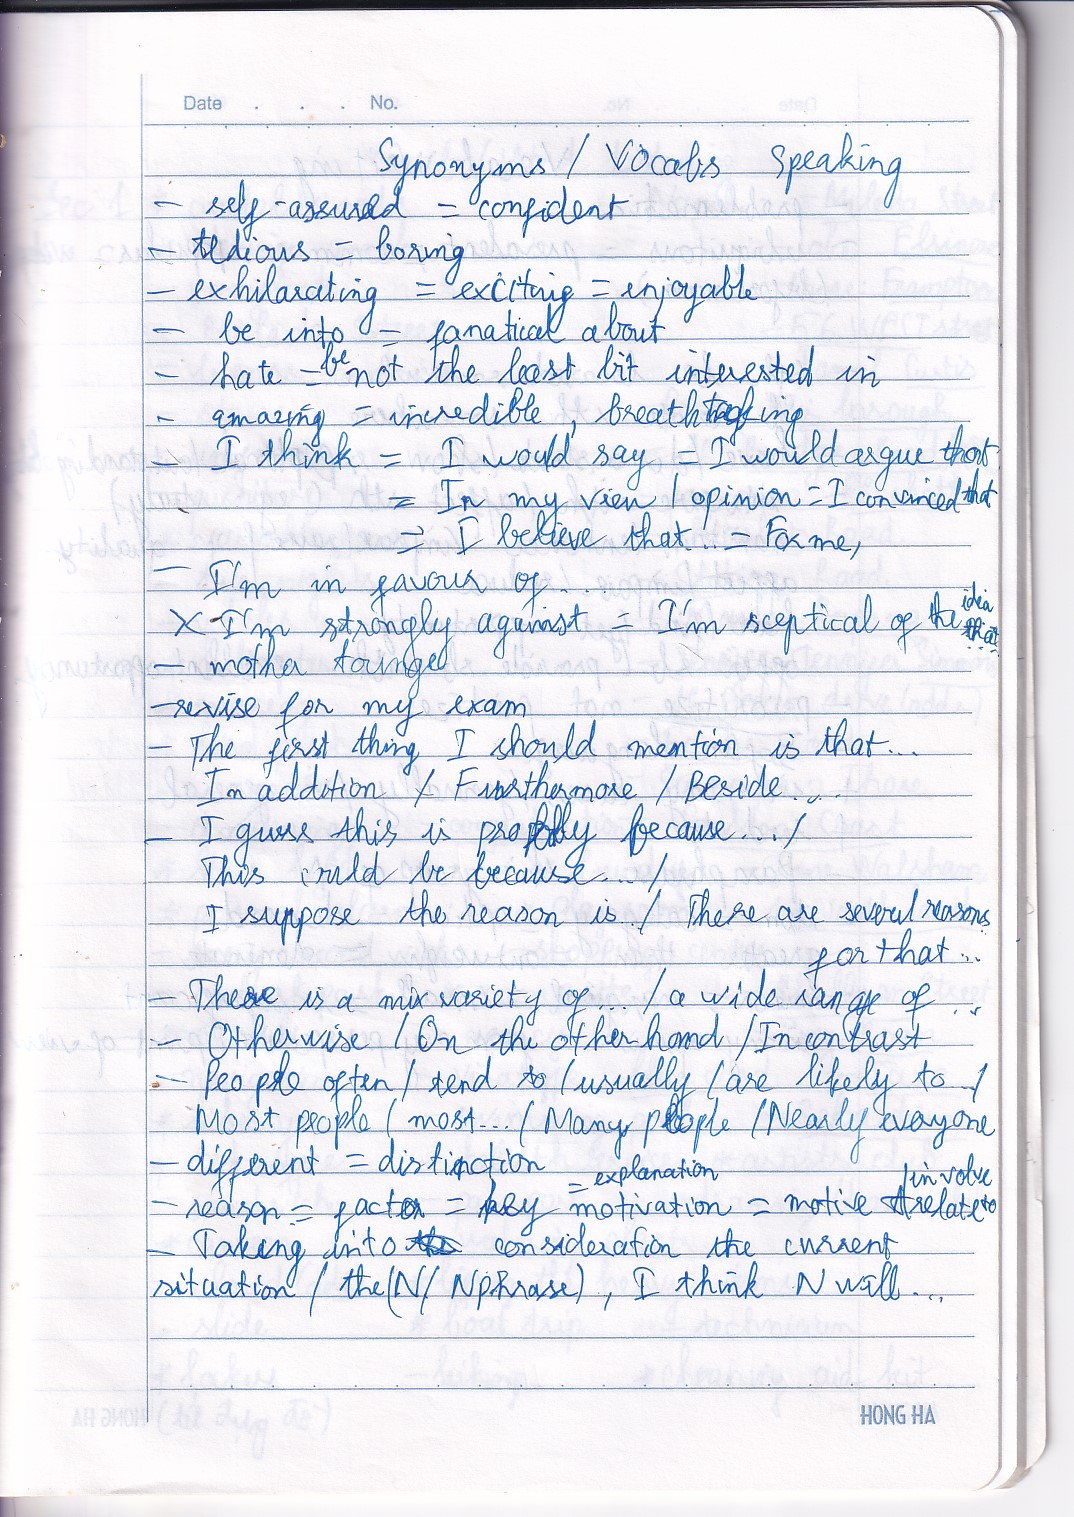 Date . . . No.
Synonyms / Vocabs Speaking
- self-assured = confident
- tedious = boring
- exhilarating = exciting = enjoyable
- be into = fanatical about
- hate = be not the least bit interested in
- amazing = incredible, breathtaking
- I think = I would say = I would argue that
= In my view / opinion = I convinced that
= I believe that... = For me,
- I'm in favour of...
X - I'm strongly against = I'm sceptical of the idea that
- motha tounge
- revise for my exam
- The first thing I should mention is that...
In addition / Furthermore / Beside...
- I guess this is probly because... /
This could be because... /
I suppose the reason is.. / There are several reasons
for that...
- There is a mix variety of... / a wide range of ...
- Otherwise / On the other hand / In contrast
- People often / tend to / usually / are likely to... /
Most people / most... / Many people / Nearly everyone
- different = distinction
- reason = factor = key motivation = explanation = motive / relate to / involve
- Taking into consideration the current
situation / the (N / N phrase), I think N will...
HONG HA